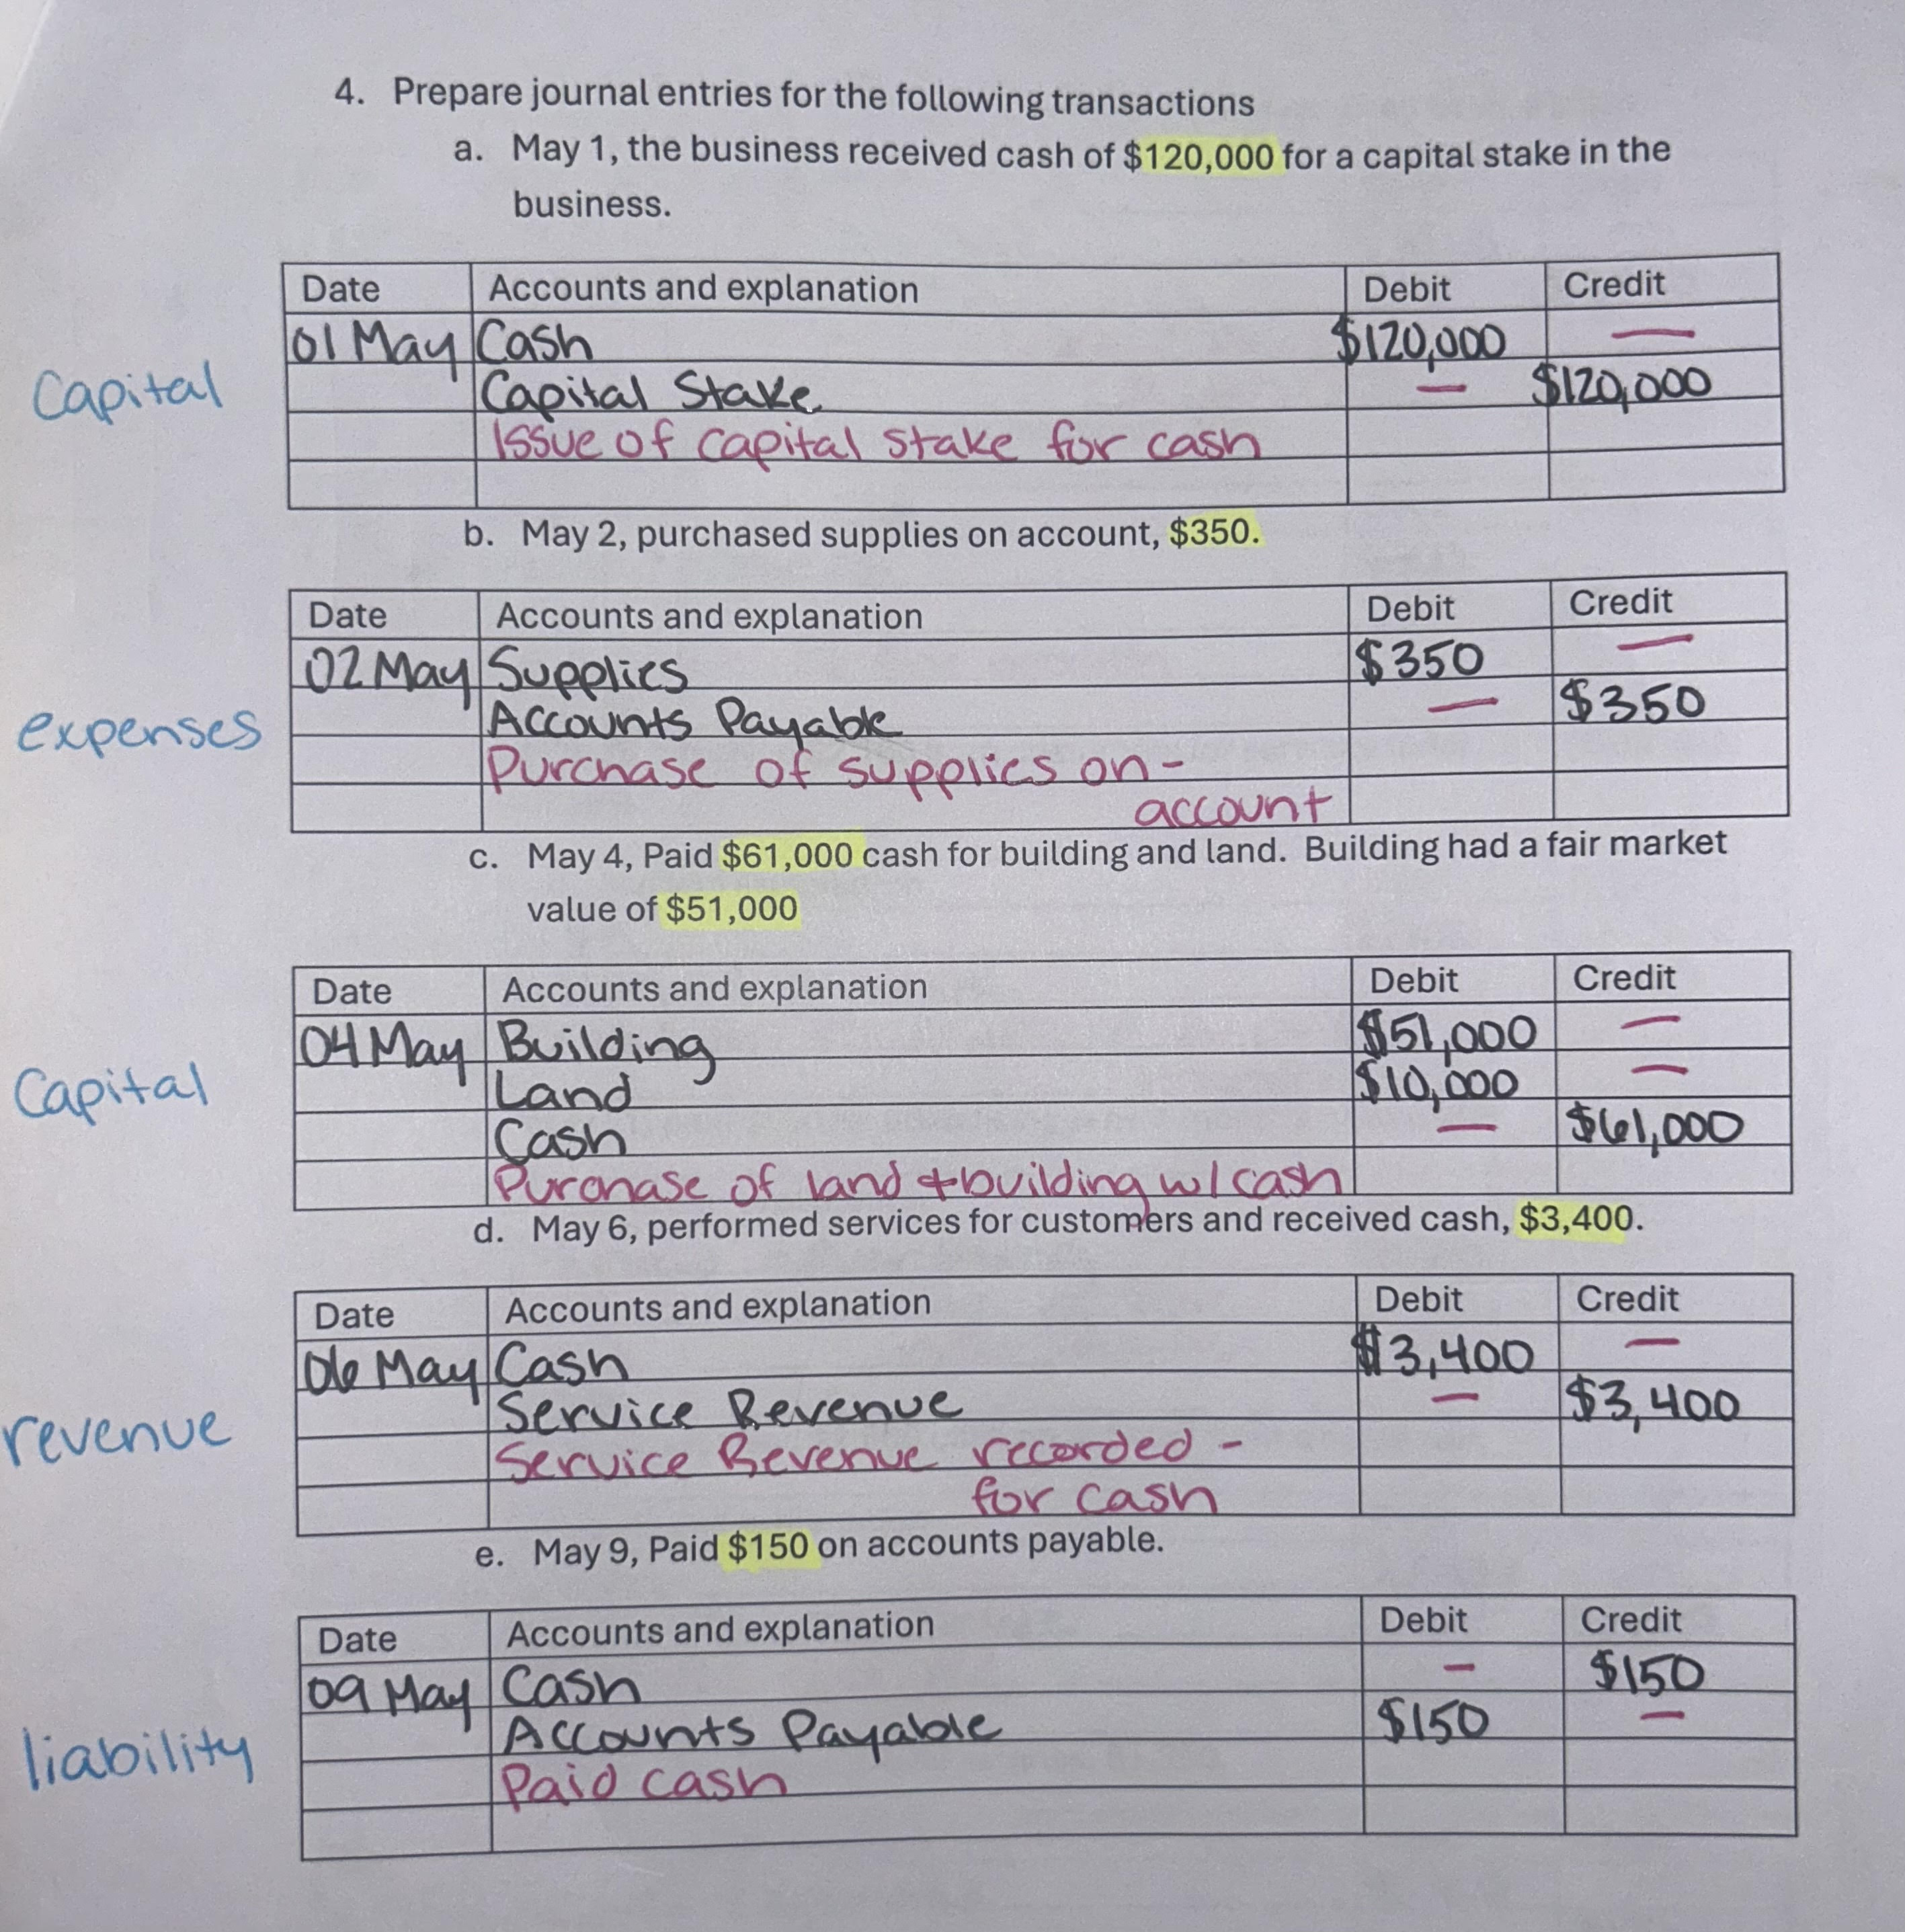 4. Prepare journal entries for the following transactions
a. May 1, the business received cash of $120,000 for a capital stake in the
business.
Date Accounts and explanation Debit Credit
01 May Cash $120,000 —
Capital
Capital Stake — $120,000
Issue of capital stake for cash
b. May 2, purchased supplies on account, $350.
Date Accounts and explanation Debit Credit
02 May Supplies $350 —
expenses
Accounts Payable — $350
Purchase of supplies on-
account
c. May 4, Paid $61,000 cash for building and land. Building had a fair market
value of $51,000
Date Accounts and explanation Debit Credit
04 May Building $51,000 —
Capital
Land $10,000 —
Cash — $61,000
Purchase of land + building w/ cash
d. May 6, performed services for customers and received cash, $3,400.
Date Accounts and explanation Debit Credit
06 May Cash $3,400 —
revenue
Service Revenue — $3,400
Service Revenue recorded -
for cash
e. May 9, Paid $150 on accounts payable.
Date Accounts and explanation Debit Credit
09 May Cash — $150
liability
Accounts Payable $150 —
Paid cash